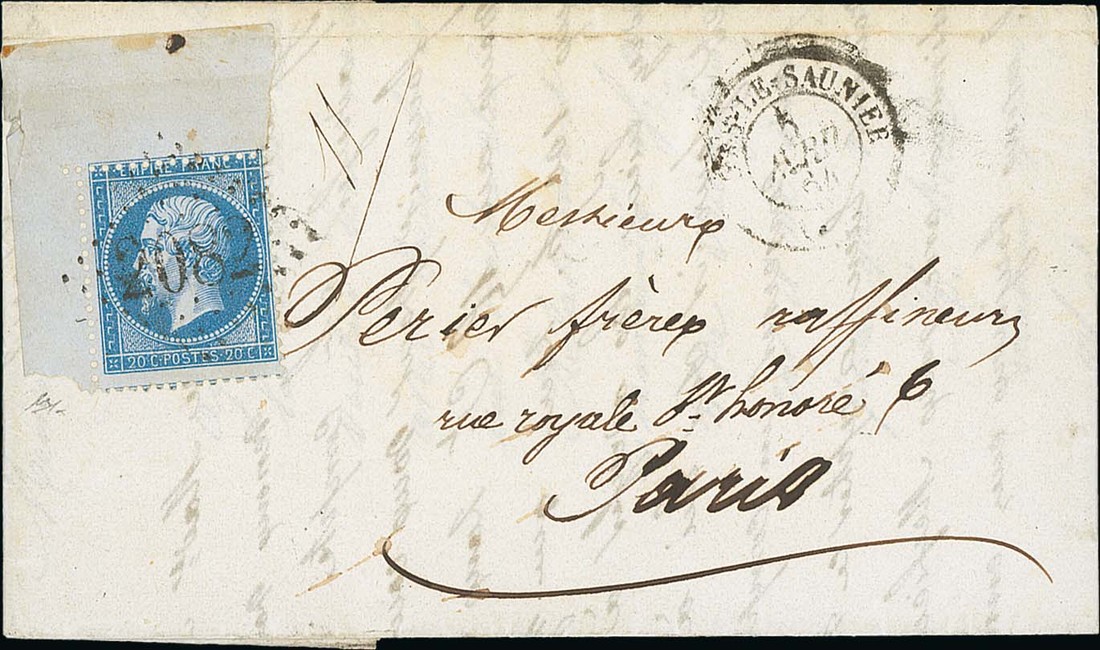 EMPIRE FRANC
2082
20 C·POSTES·20 C
11
LE-SAUNIER
5
64
Messieurs
Perier frères raffineurs
rue royale St honoré 6
Paris